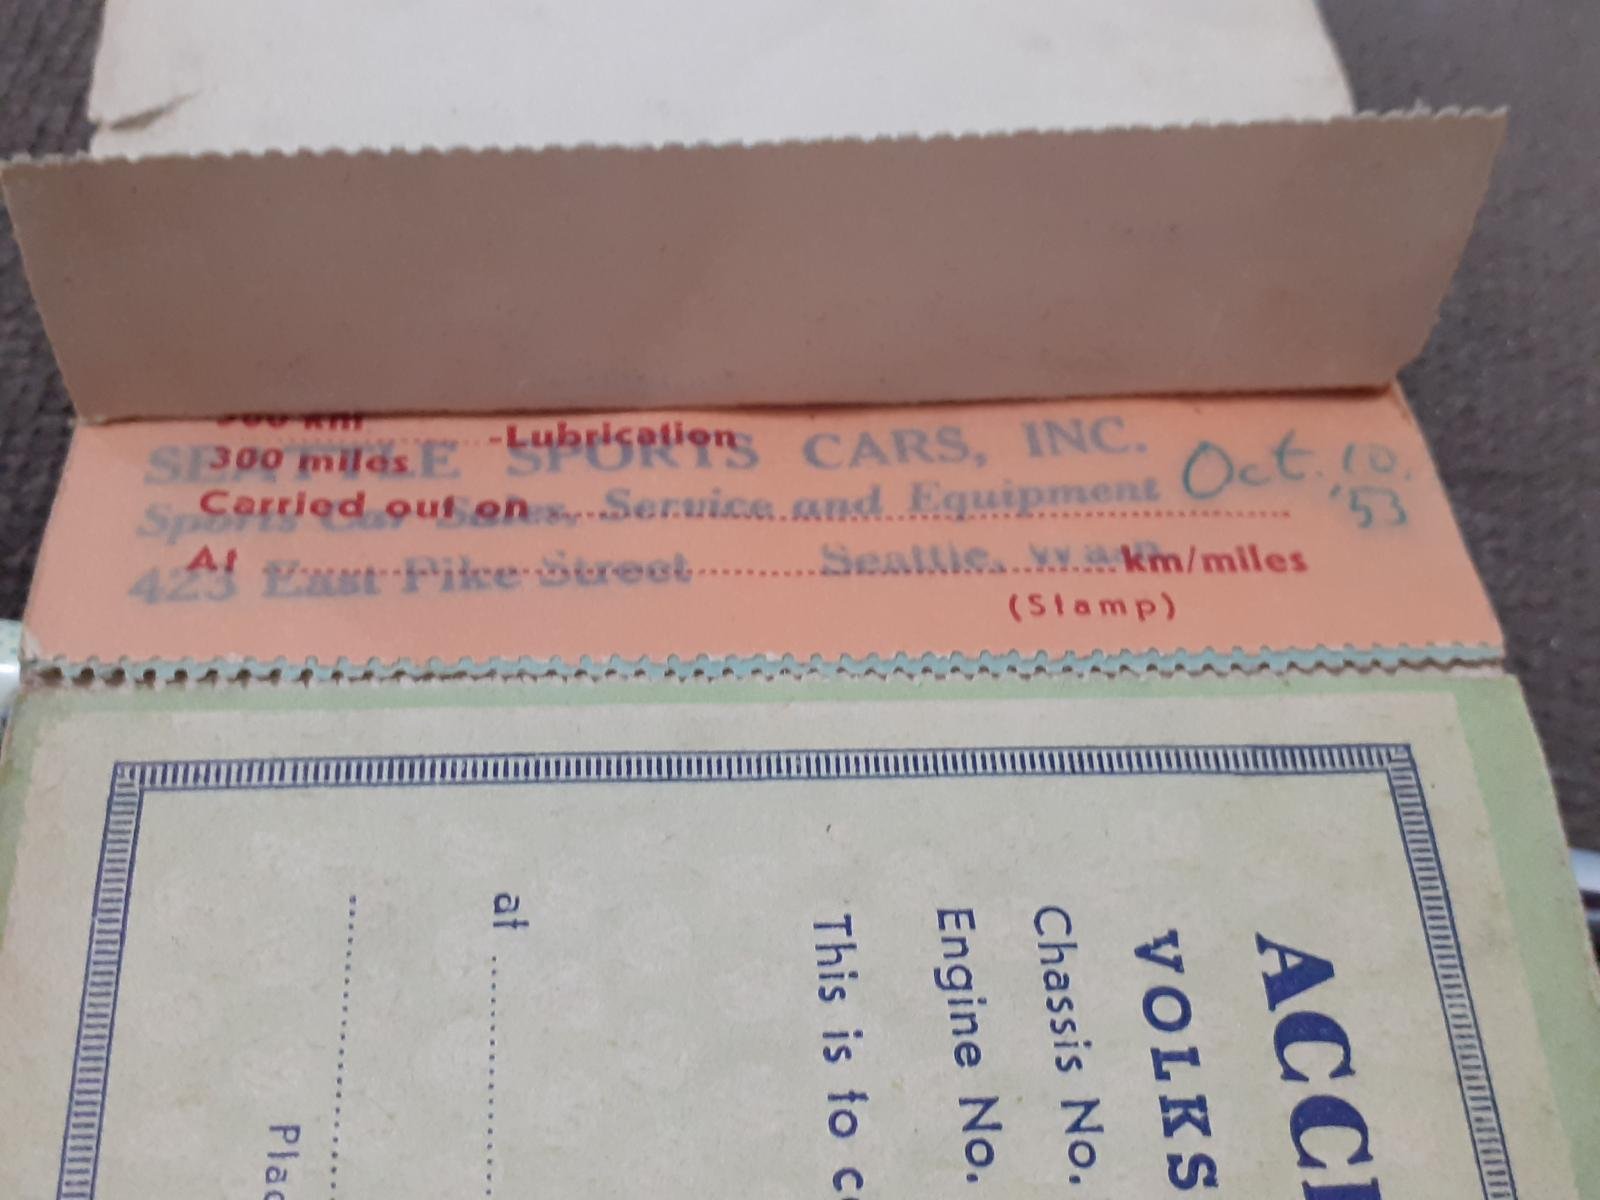 500 km
300 miles -Lubrication
SEATTLE SPORTS CARS, INC.
Oct. 10. '53
Carried out on
Sports Car Sales, Service and Equipment
At km/miles
423 East Pike Street Seattle, Wash.
(Stamp)
ACC
VOLKS
Chassis No.
Engine No.
This is to c
at
Plac